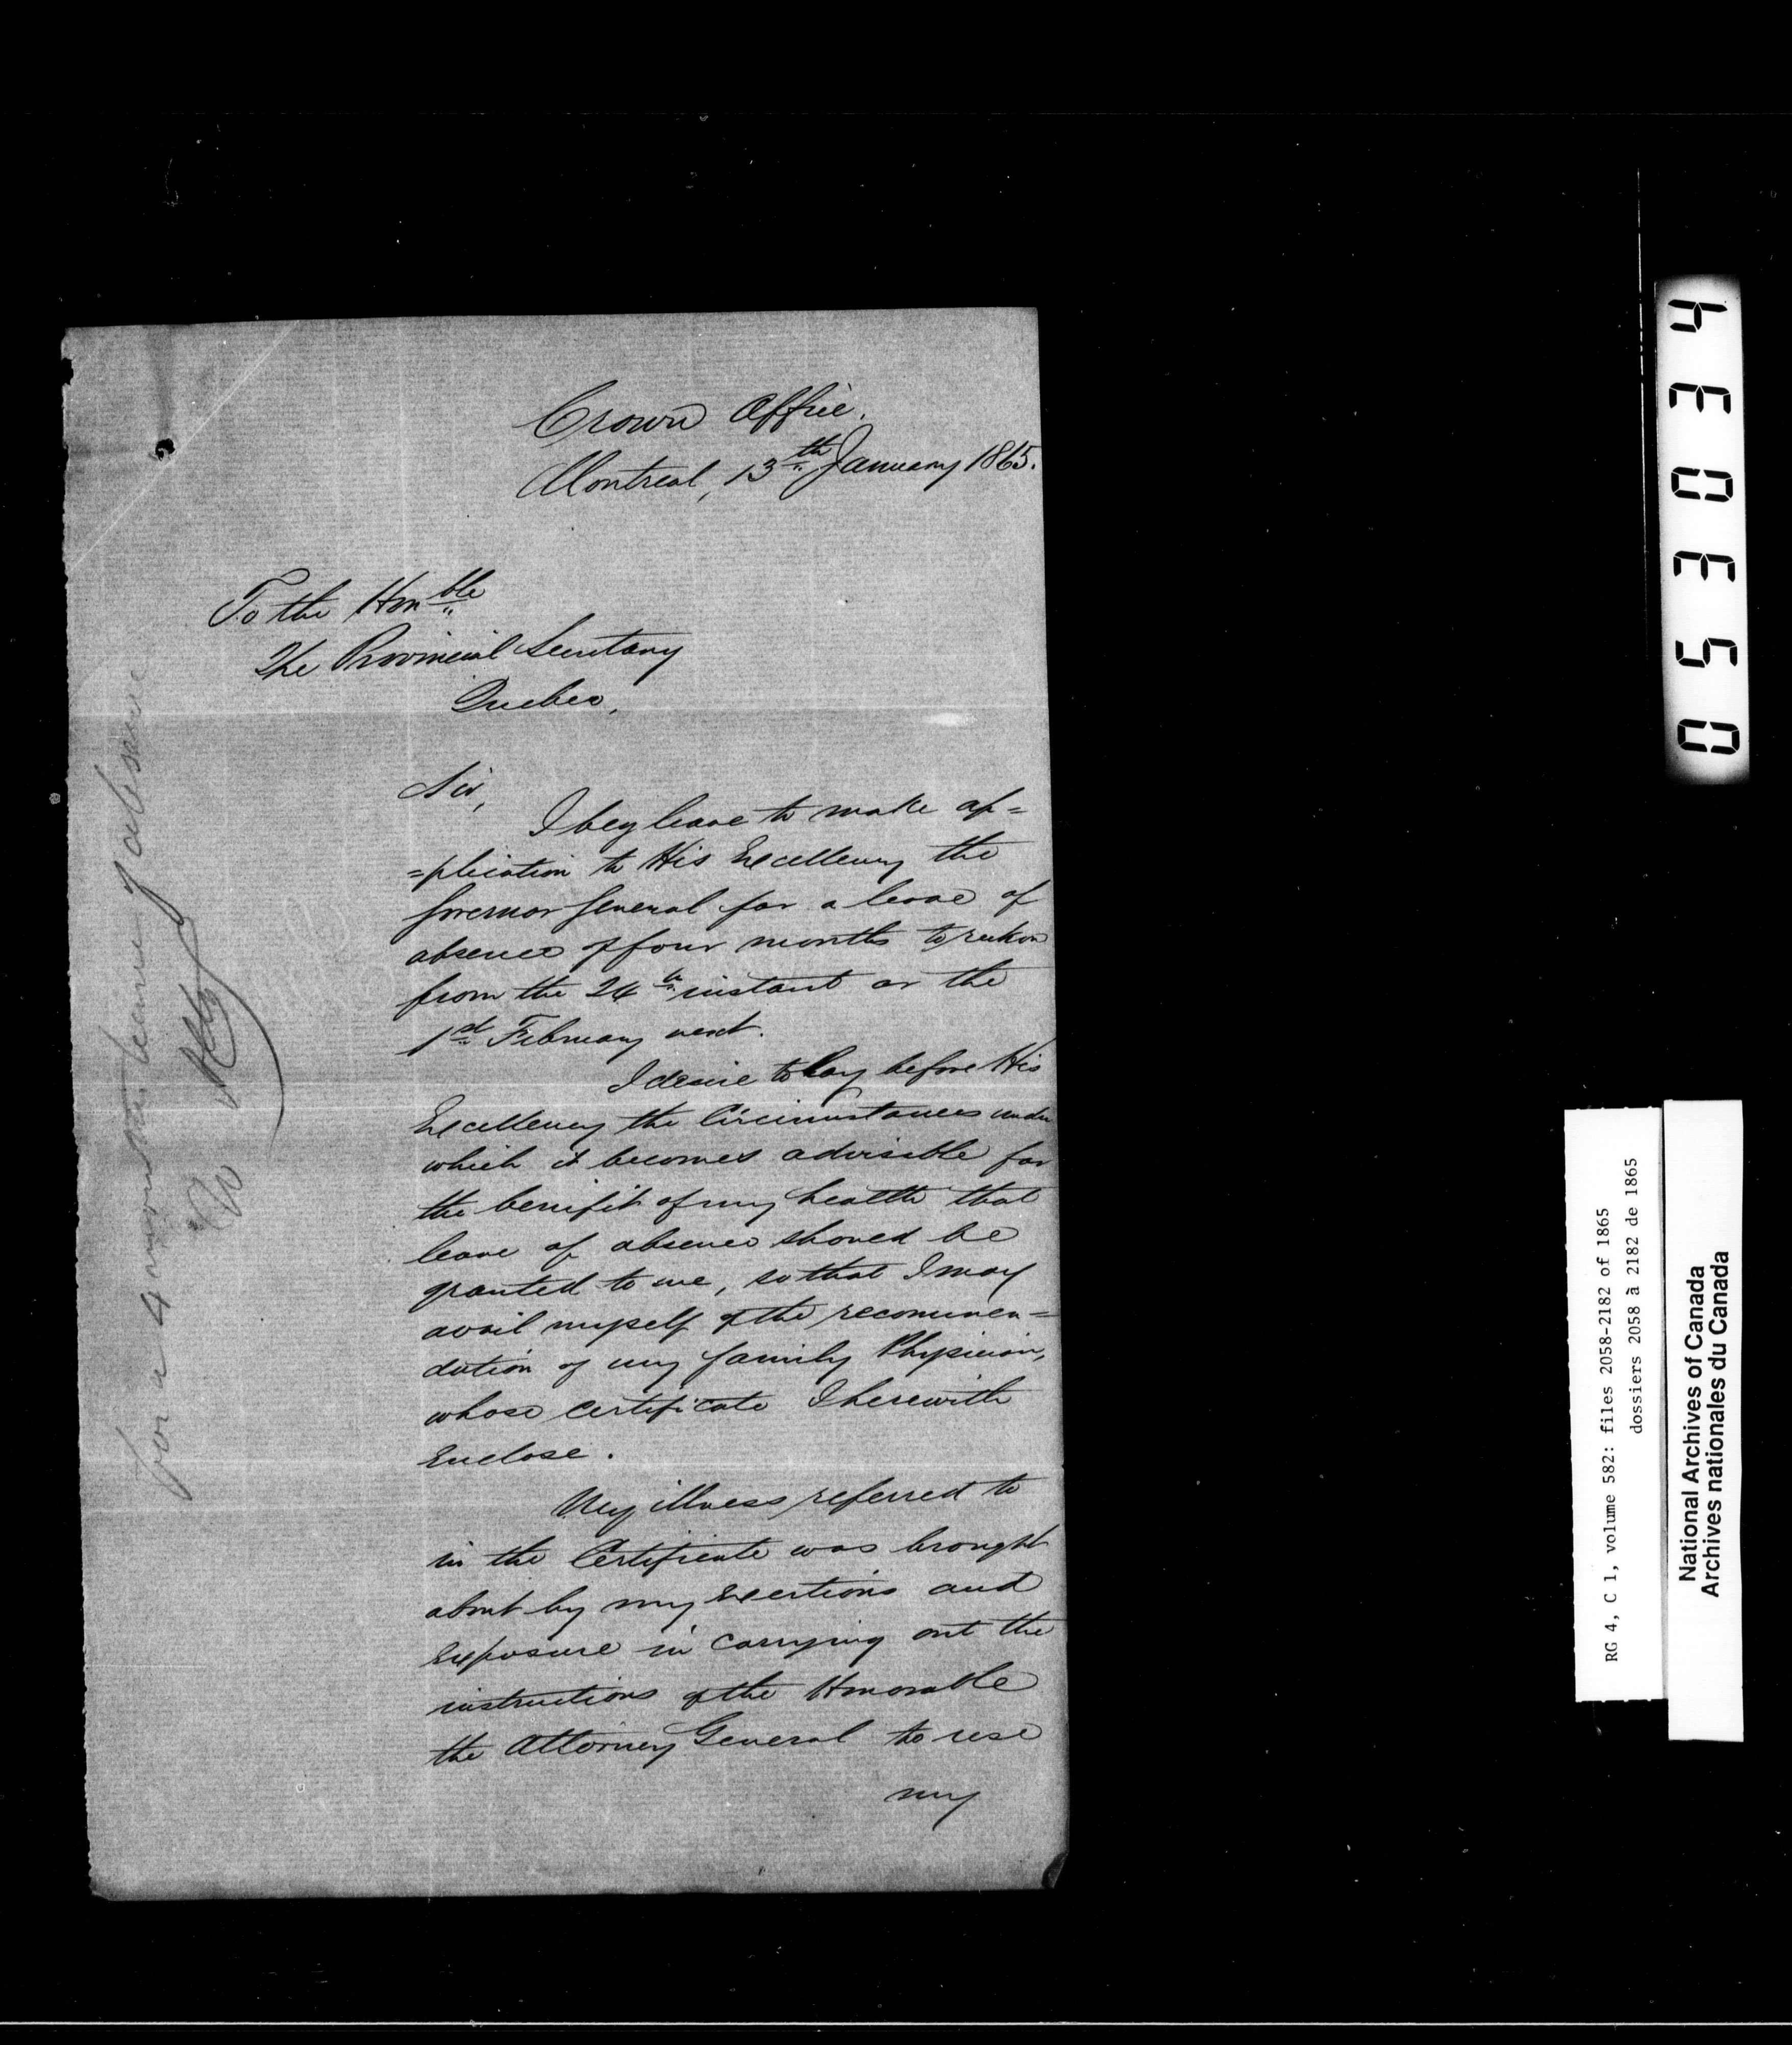 Crown Office.
Montreal, 13th January 1865.
To the Honble
The Provincial Secretary
Quebec,
Sir,
I beg leave to make ap=
=plication to His Excellency the
Governor General for a leave of
absence of four months to reckon
from the 24th instant or the
1st February next.
I desire to lay before His
Excellency the Circumstances under
which it becomes advisible for
the benifit of my health that
leave of absence should be
granted to me, so that I may
avail myself of the recommen=
dation of my family Physician,
whose certificate I herewith
Enclose.
My illness referred to
in the Certificate was brought
about by my Exertions and
Exposure in carrying out the
instructions of the Honorable
the Attorney General to use
my
for a 4 months leave of absence
053034
RG 4, C 1, volume 582: files 2058-2182 of 1865
dossiers 2058 à 2182 de 1865
National Archives of Canada
Archives nationales du Canada